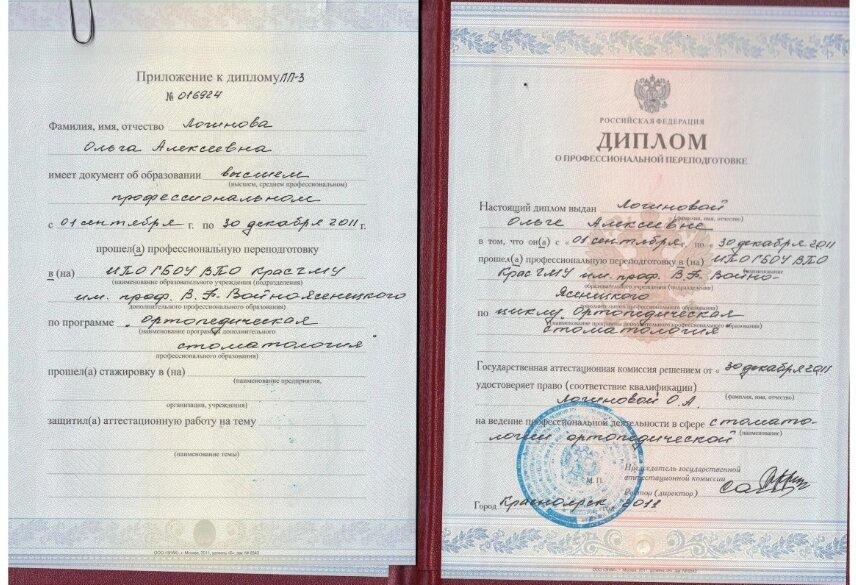 Приложение к диплому ПП-3
№ 016924
Фамилия, имя, отчество Логинова
Ольга Алексеевна
имеет документ об образовании высшем
(высшем, среднем профессиональном)
профессиональном
с 01 сентября г. по 30 декабря 2011 г.
прошел(а) профессиональную переподготовку
в (на) ИПО ГБОУ ВПО КрасГМУ
(наименование образовательного учреждения (подразделения)
им. проф. В.Ф. Войно-Ясенецкого
дополнительного профессионального образования)
по программе "Ортопедическая
(наименование программы дополнительного
стоматология
профессионального образования)
прошел(а) стажировку в (на)
(наименование предприятия,
организации, учреждения)
защитил(а) аттестационную работу на тему
(наименование темы)
РОССИЙСКАЯ ФЕДЕРАЦИЯ
ДИПЛОМ
О ПРОФЕССИОНАЛЬНОЙ ПЕРЕПОДГОТОВКЕ
Настоящий диплом выдан Логиновой
(фамилия, имя, отчество)
Ольге Алексеевне
в том, что он(а) с «01 сентября» по «30 декабря 2011
прошел(а) профессиональную переподготовку в (на) ИПО ГБОУ ВПО
(наименование
КрасГМУ им. проф. В.Ф. Войно-
образовательного учреждения (подразделения)
Ясенецкого
дополнительного профессионального образования)
по циклу Ортопедическая
(наименование программы дополнительного профессионального образования)
стоматология
Государственная аттестационная комиссия решением от «30 декабря 2011
удостоверяет право (соответствие квалификации)
(фамилия, имя, отчество)
Логиновой О.А.
на ведение профессиональной деятельности в сфере стомато-
(наименование)
логии ортопедической
Председатель государственной
аттестационной комиссии
М. П.
Ректор (директор)
Город Красноярск 2011